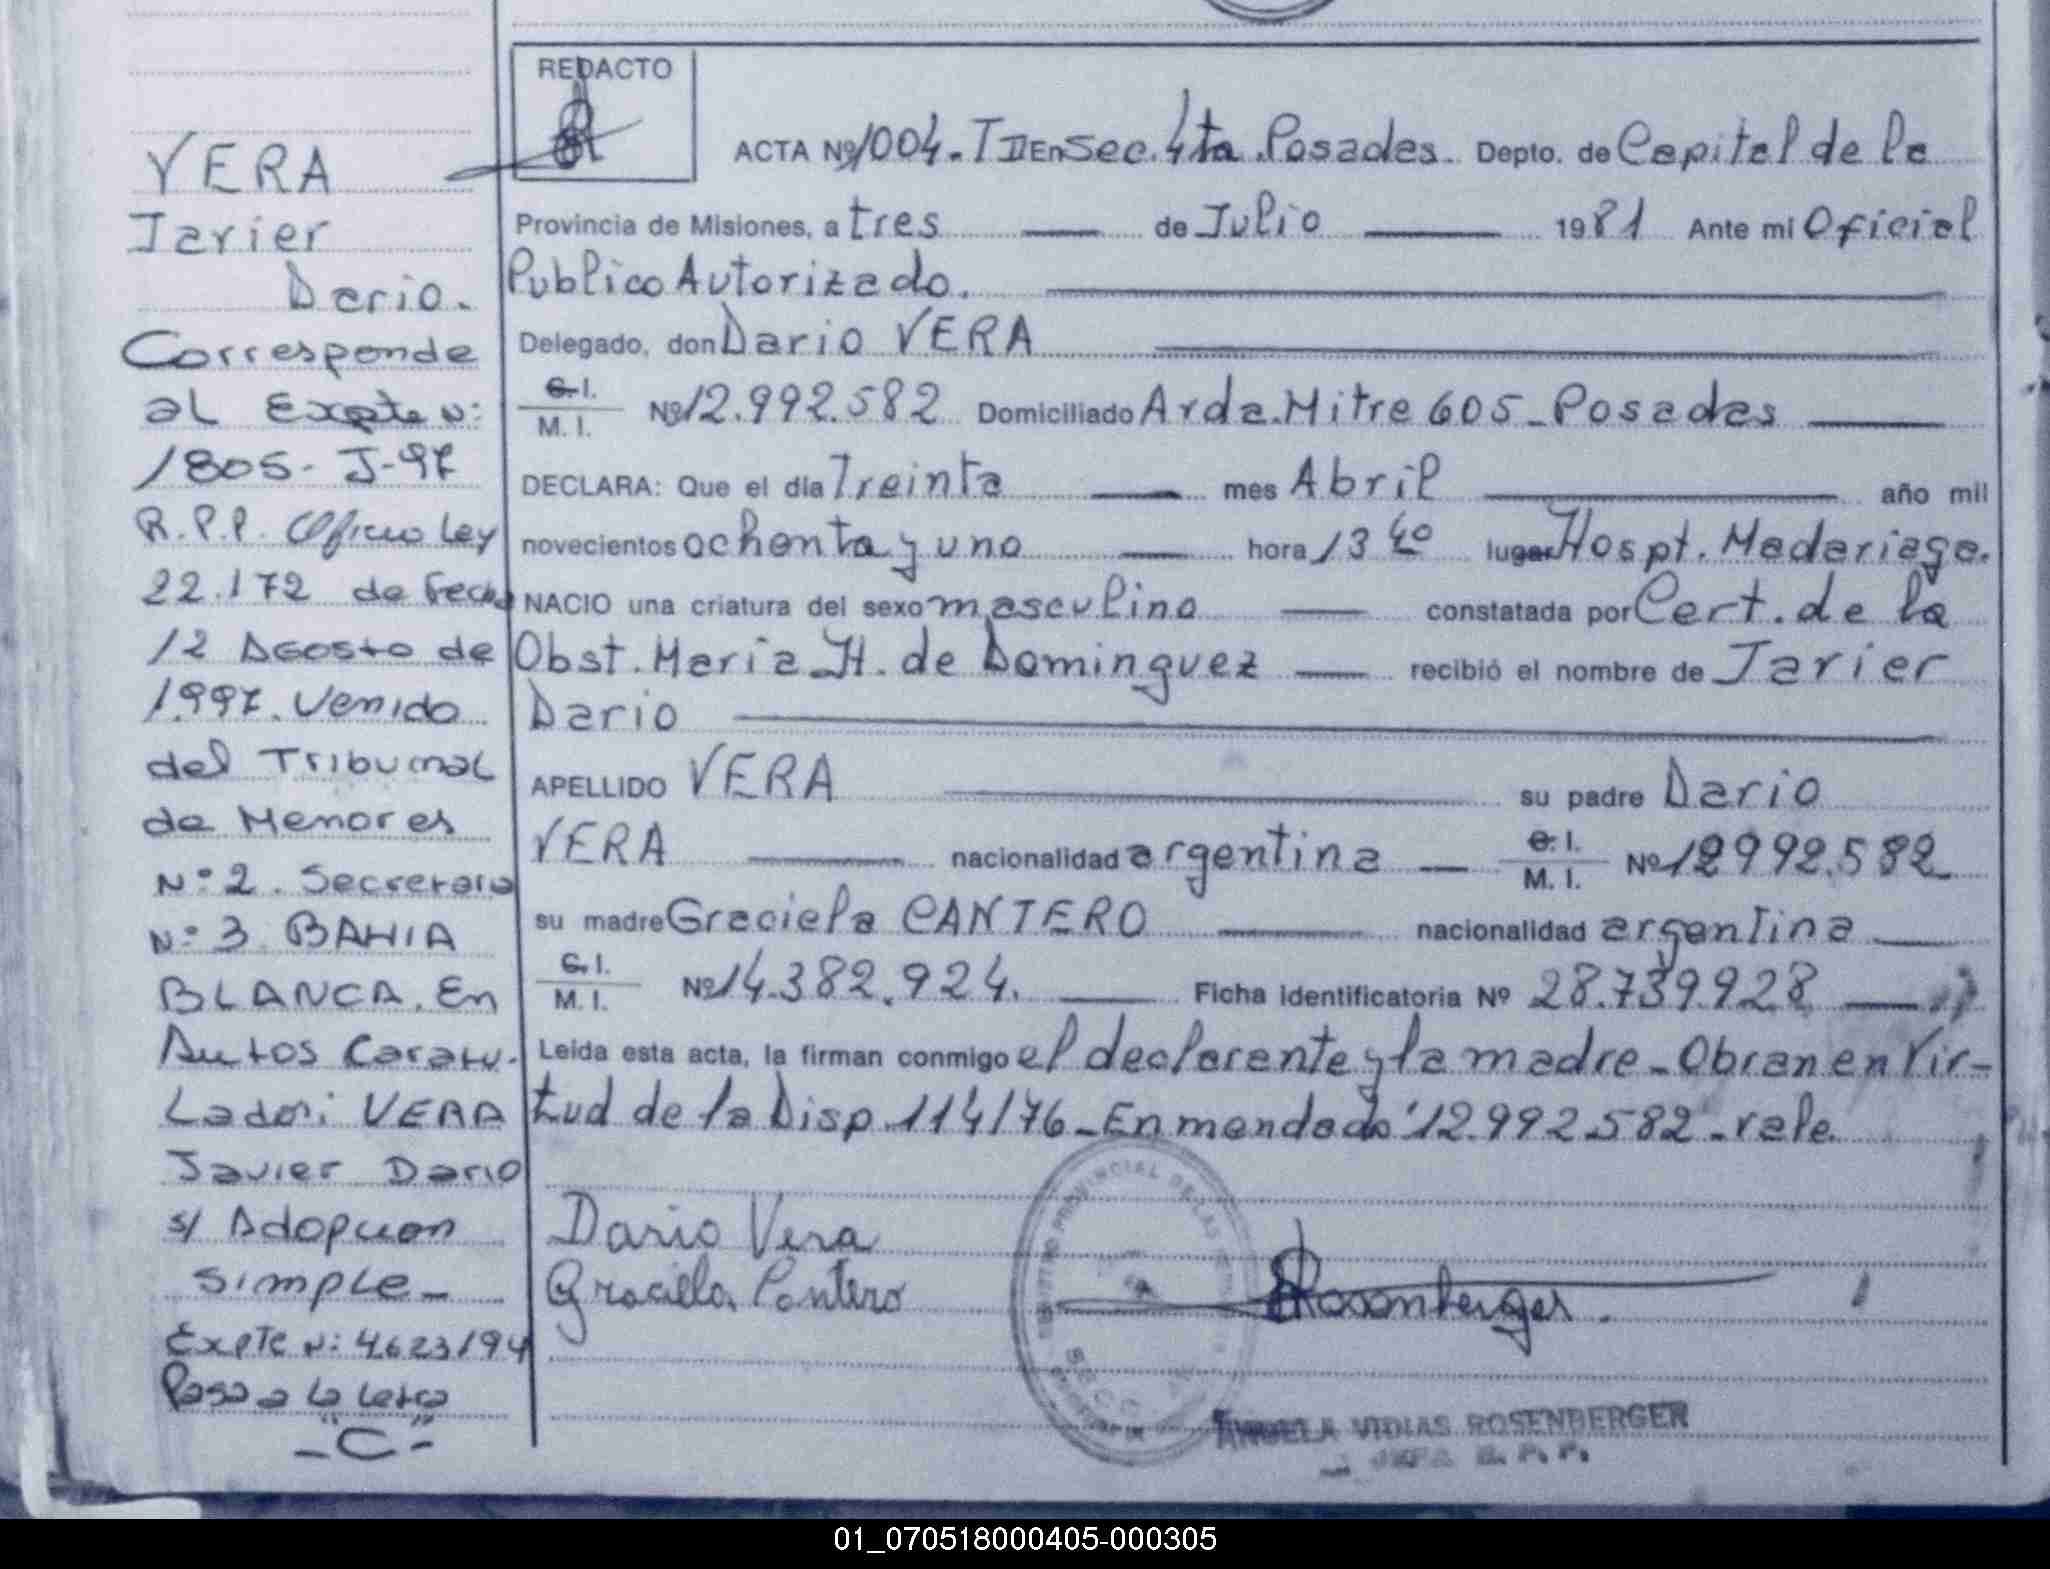 VERA
Javier
Dario.
Corresponde
al Expte N:
1805-J-97
R.P.P. Oficio Ley
22.172 de fecha
12 Agosto de
1.997. Venido
del Tribunal
de Menores
N:2. Secretaria
N:3 BAHIA
BLANCA. En
Autos Caratu-
lados: VERA
Javier Dario
s/ Adopcion
simple_
Expte N: 4623/94
Pasa a la letra
_"C"-
REDACTO
ACTA Nº 1004.TII En Sec. 4ta.Posadas. Depto. de Capital de la
Provincia de Misiones, a tres de Julio 1981 Ante mi Oficial
Publico Autorizado.
Delegado, don Dario VERA
C.I. / M. I. Nº 12.992.582 Domiciliado Avda.Mitre 605_Posadas
DECLARA: Que el día Treinta mes Abril año mil
novecientos ochenta y uno hora 13 40 lugar Hospt. Madariaga.
NACIO una criatura del sexo masculino constatada por Cert. de la
Obst. Maria H. de Dominguez recibió el nombre de Javier
Dario
APELLIDO VERA su padre Dario
VERA nacionalidad argentina C.I. / M. I. Nº 12992.582
su madre Graciela CANTERO nacionalidad argentina
C.I. / M. I. Nº 14.382.924. Ficha identificatoria Nº 28.739.928
Leída esta acta, la firman conmigo el declarante y la madre_Obran en Vir-
tud de la Disp.114/76_Enmendado "12.992.582_vale.
Dario Vera
Graciela Cantero
Rosenberger.
REGISTRO PROVINCIAL DE LAS PERSONAS
SECC.
ANGELA VIDIAS ROSENBERGER
JEFA R. P. P.
01_070518000405-000305